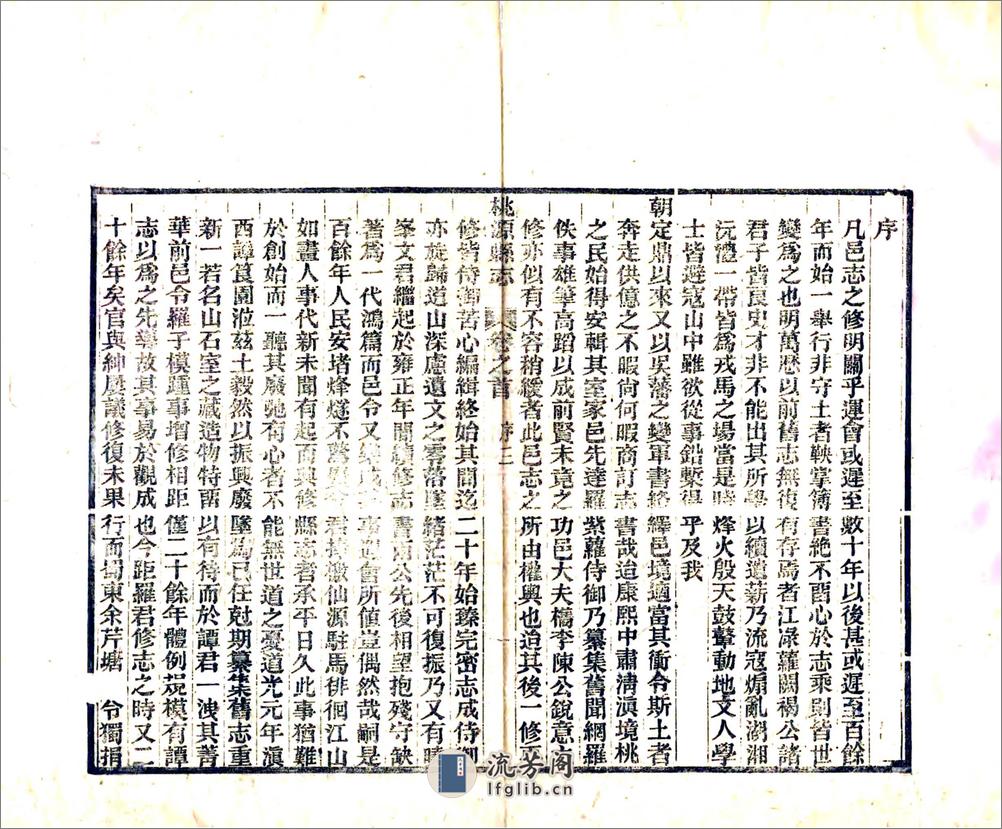 序
凡邑志之修明關乎運會或遲至數十年以後甚或遲至百餘
年而始一舉行非守土者鞅掌簿書絶不關心於志乘則皆世
變爲之也明萬歷以前舊志無復有存焉者江渌蘿闕褐公諸
君子皆良史才非不能出其所學以續遺薪乃流寇煽亂湖湘
沅澧一帶皆爲戎馬之場當是時烽火殷天鼓鼙動地文人學
士皆避寇山中雖欲從事鉛槧得乎及我
朝定鼎以來又以吳藩之變軍書絡繹邑境適當其衝令斯土者
奔走供億之不暇尙何暇商訂志書哉迨康熙中肅淸滇境桃
之民始得安輯其室家邑先達羅紫蘿侍御乃纂集舊聞網羅
佚事雄筆高蹈以成前賢未竟之功邑大夫檇李陳公銳意
修亦似有不容稍緩者此邑志之所由權輿也迨其後一修
桃源縣志 卷之首 序三
修皆侍御苦心編緝終始其閒迄二十年始臻完密志成侍御
亦旋歸道山深慮遺文之零落墜緒茫茫不可復振乃又有
峯文君繼起於雍正年閒續修志書兩公先後相望抱殘守缺
著爲一代鴻篇而邑令又 會所值豈偶然哉嗣是
百餘年人民安堵烽燧不 君持檄仙源駐馬徘徊江山
如畫人事代新未聞有起而興修縣志者承平日久此事猶難
於創始而一聽其廢弛有心者不能無世道之憂道光元年滇
西譚筤園涖兹土毅然以振興廢墜為己任尅期纂集舊志重
新一若名山石室之藏造物特留以有待而於譚君一洩其菁
華前邑令羅子模踵事增修相距僅二十餘年體例規模有譚
志以爲之先導故其事易於觀成也今距羅君修志之時又二
十餘年矣官與紳屢議修復未果行而蜀東余芹塘 台獨捐
流芳阁
lfglib.cn